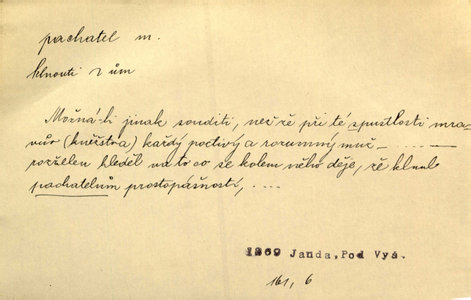 pachatel m.
klnouti ům
Možná-li jinak souditi, než že při té spustlosti mra-
vův (kněžstva) každý poctivý a rozumný muž — . . . . —
rozželen hleděl na to co se kolem něho děje, že klnul
pachatelům prostopášností, . . . .
1869 Janda, Pod Vyš.
161, 6